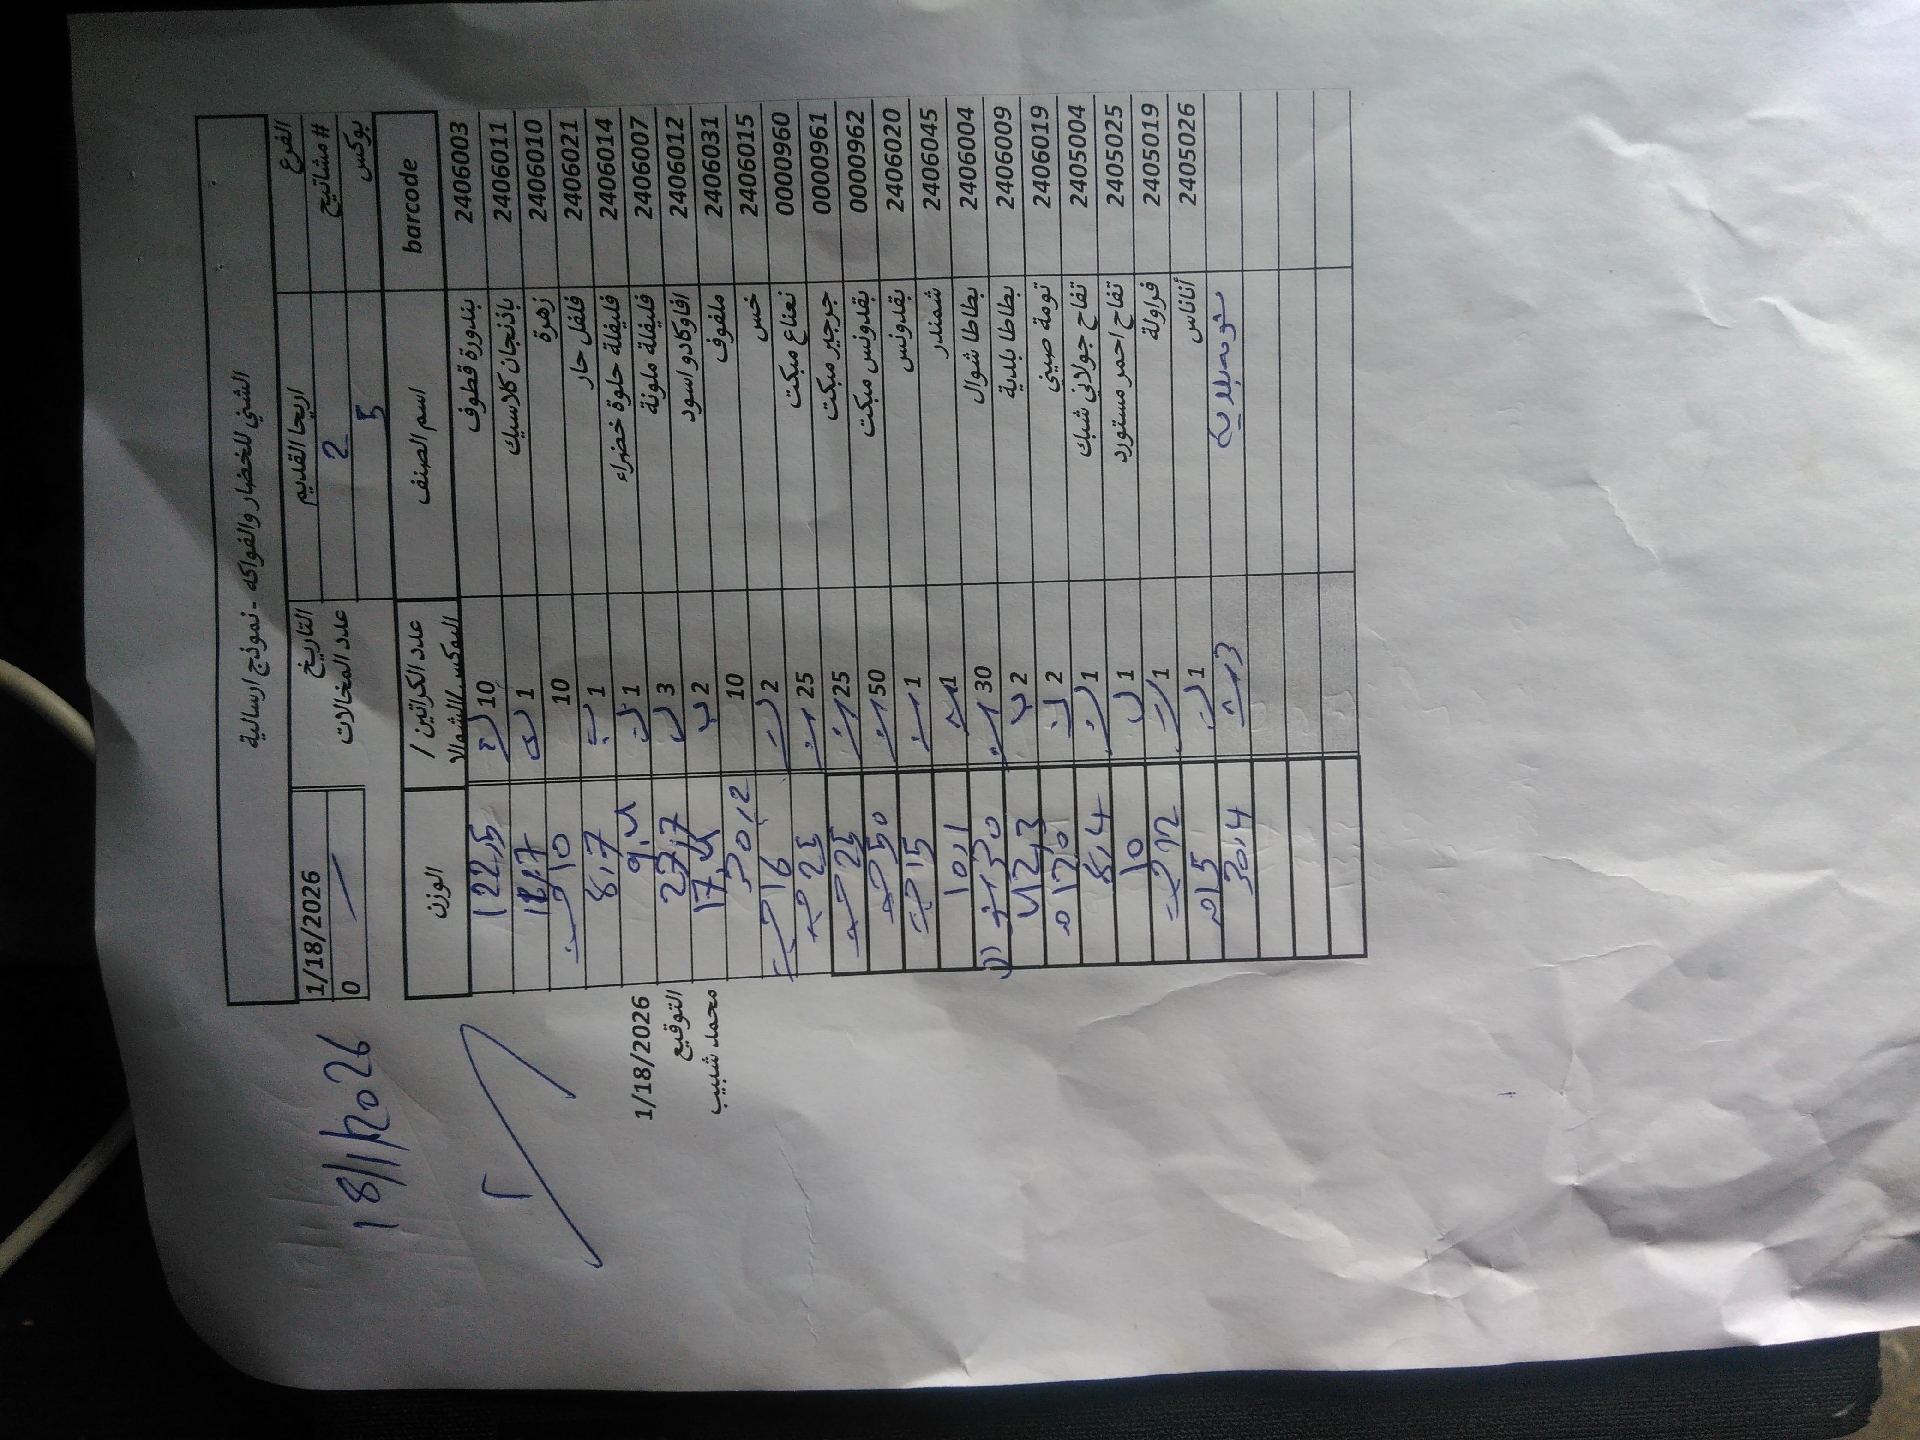 الشني للخضار والفواكه - نموذج ارسالية
الفرع اريحا القديم التاريخ 1/18/2026
# مشاتيح 2 عدد المخالات 0
بوكس 5
18/1/2026
barcode اسم الصنف عدد الكراتين / البوكس / الشوال الوزن
2406003 بندورة قطوف 10 122,5
2406011 باذنجان كلاسيك 1
2406010 زهرة 10 10
2406021 فلفل حار 1 8,7
2406014 فليفلة حلوة خضراء 1
2406007 فليفلة ملونة 3 27,7
2406012 افاوكادو اسود 2
2406031 ملفوف 10 30,2
2406015 خس 2 16
0000960 نعناع مبكت 25 25
0000961 جرجير مبكت 25 25
0000962 بقدونس مبكت 50 50
2406020 بقدونس 1 15
2406045 شمندر 1 10,1
2406004 بطاطا شوال 30 30
2406009 بطاطا بلدية 2
2406019 تومة صيني 2
2405004 تفاح جولاني شبك 1 8,4
2405025 تفاح احمر مستورد 1 10
2405019 فراولة 1 12
2405026 أناناس 1
3 30,4
1/18/2026
التوقيع
محمد شبيب